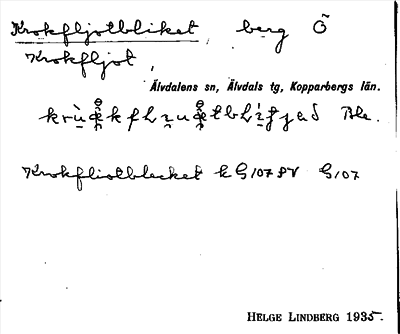 Krokfljotbliket, berg Ö
Krokfljot,
Älvdalens sn, Älvdals tg, Kopparbergs län.
Krokfliotblecket k G 107 SV G 107
HELGE LINDBERG 1935.